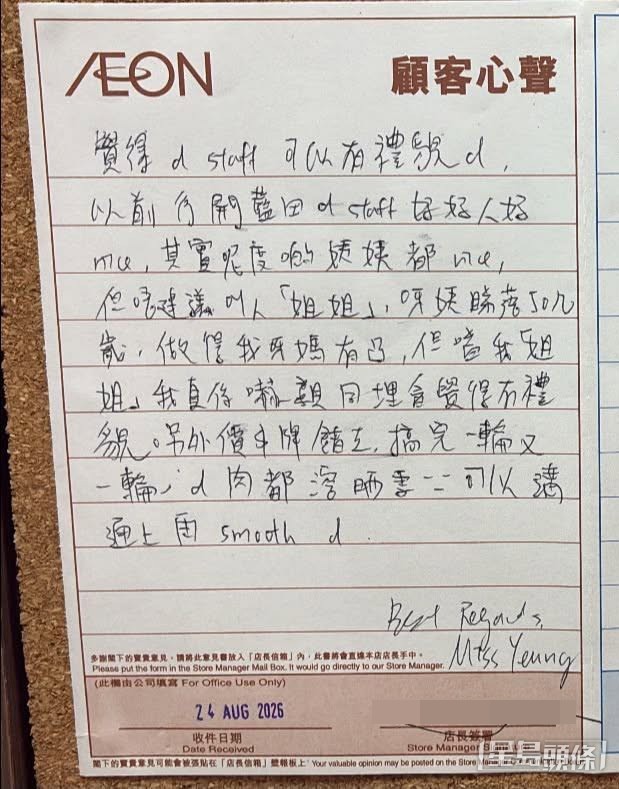 ÆON
顧客心聲
覺得 d staff 可以有禮貌 d,
以前行開藍田 d staff 好好人好
nice, 其實呢度啲姨姨都 nice,
但唔建議叫人「姐姐」, 呀姨睇落50幾
歲, 做得我呀媽有凸, 但嗌我「姐
姐」我真係嚇親同埋會覺得冇禮
貌。另外價錢牌錯左, 搞完一輪又
一輪, d 肉都溶晒雪 == 可以溝
通上面 smooth d.
Best Regards,
Miss Yeung
多謝閣下的寶貴意見,請將此意見書放入「店長信箱」內,此書將會直達本店店長手中。
Please put the form in the Store Manager Mail Box. It would go directly to our Store Manager.
(此欄由公司填寫 For Office Use Only)
24 AUG 2026
收件日期
Date Received
店長簽署
Store Manager
閣下的寶貴意見可能會被張貼在「店長信箱」壁報板上 Your valuable opinion may be posted on the Store
星島頭條